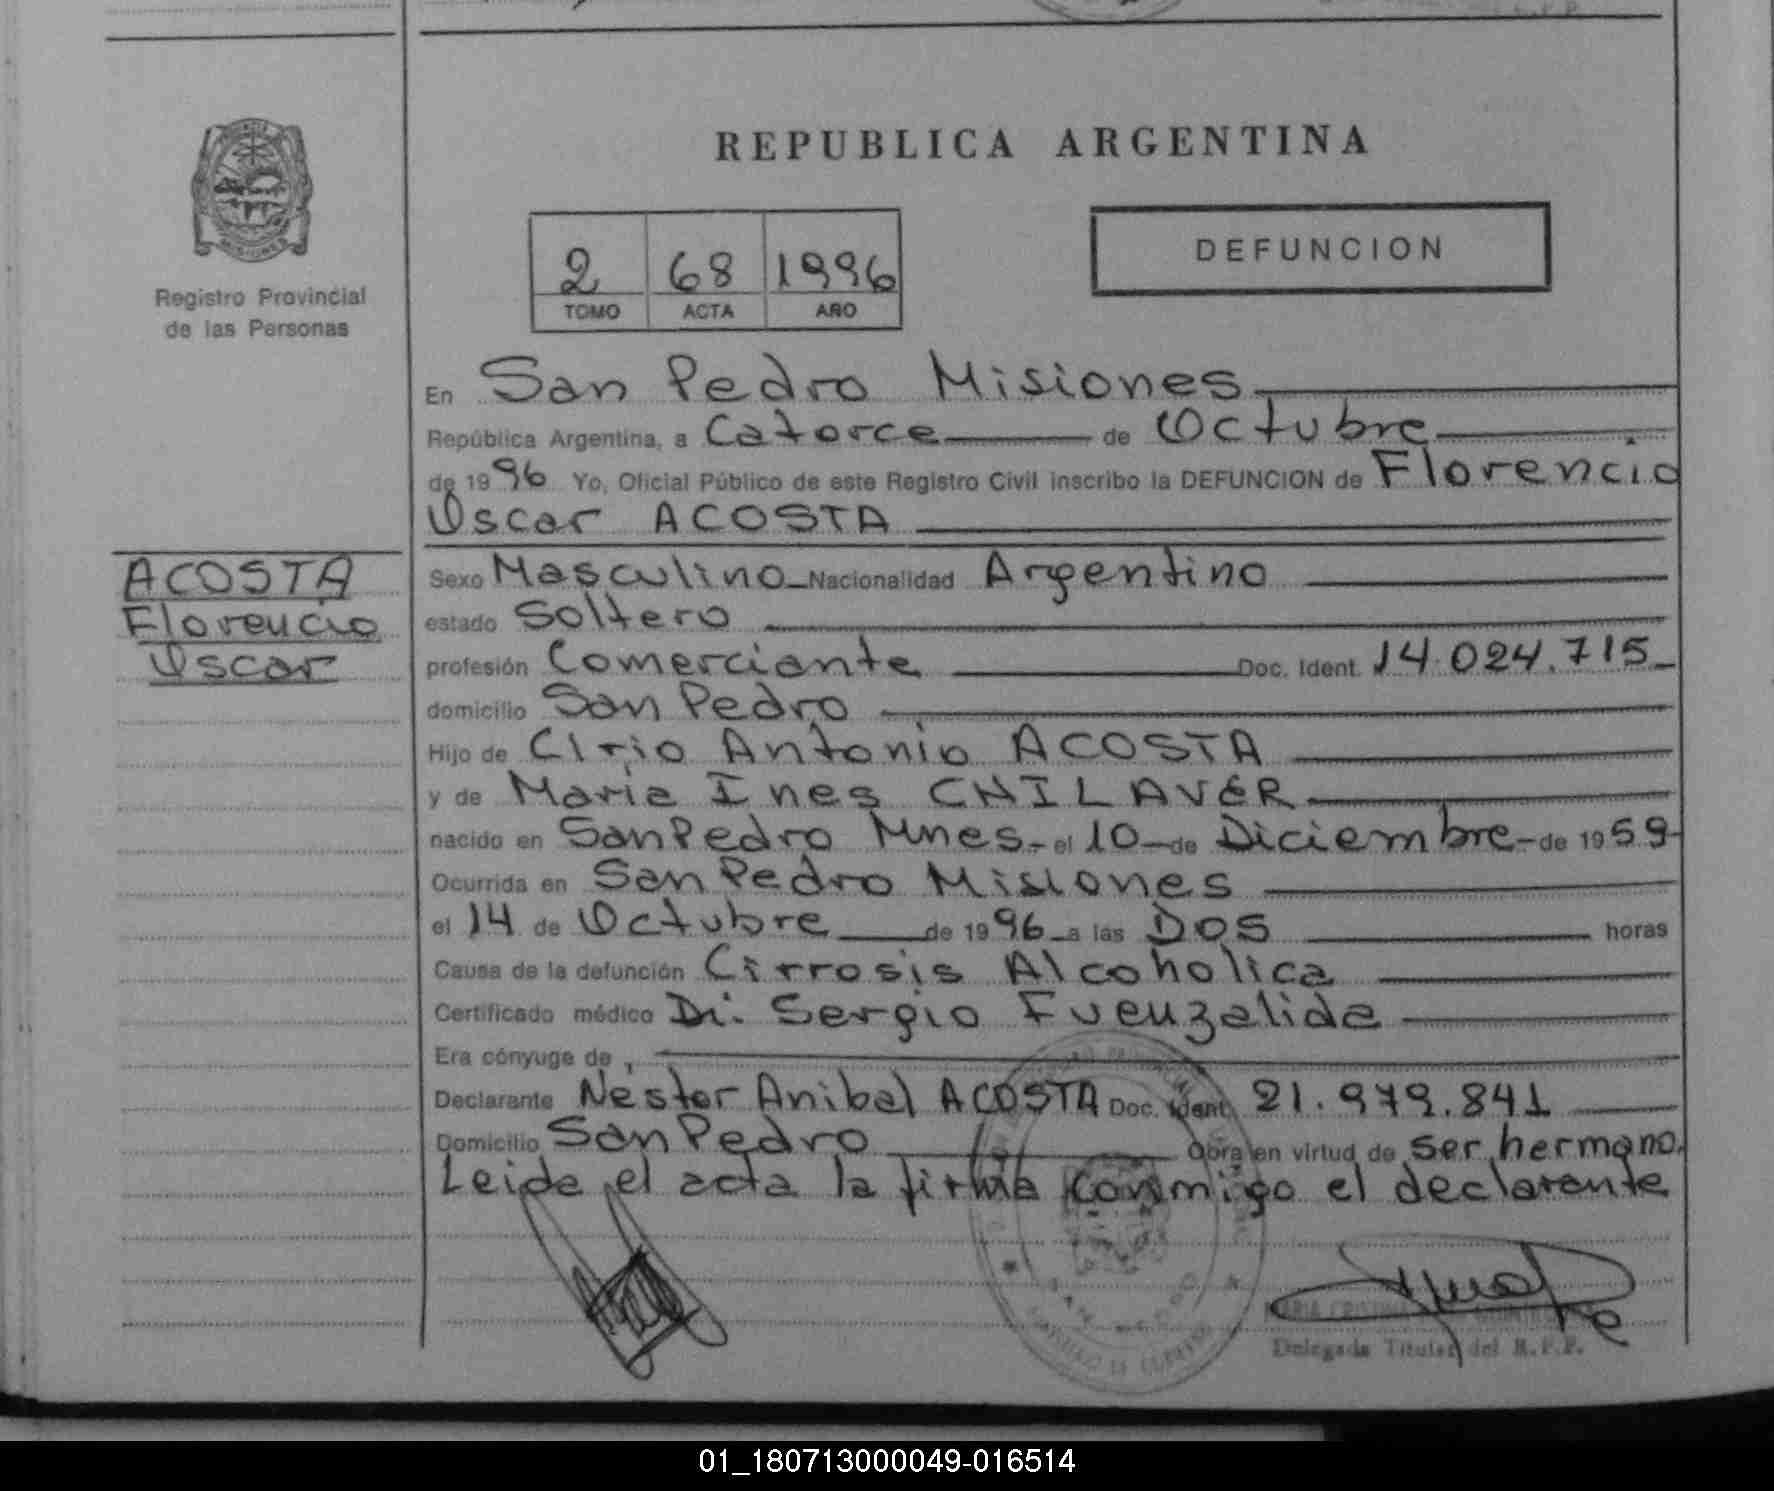 REPUBLICA ARGENTINA
MISIONES
Registro Provincial
de las Personas
2 68 1996
TOMO ACTA AÑO
DEFUNCION
En San Pedro Misiones
República Argentina, a Catorce de Octubre
de 1996 Yo, Oficial Público de este Registro Civil inscribo la DEFUNCION de Florencio
Oscar ACOSTA
ACOSTA
Florencio
Oscar
Sexo Masculino Nacionalidad Argentino
estado Soltero
profesión Comerciante Doc. Ident. 14.024.715
domicilio San Pedro
Hijo de Cirio Antonio ACOSTA
y de Maria Ines CHILAVER
nacido en San Pedro Mnes. el 10 de Diciembre de 1959
Ocurrida en San Pedro Misiones
el 14 de Octubre de 1996 a las DOS horas
Causa de la defunción Cirrosis Alcoholica
Certificado médico Dr. Sergio Fuenzalida
Era cónyuge de
Declarante Nestor Anibal ACOSTA Doc. Ident. 21.979.841
Domicilio San Pedro Obra en virtud de ser hermano.
Leida el acta la firma conmigo el declarante
MARIA CRISTINA
Delegada Titular del R.P.P.
01_180713000049-016514